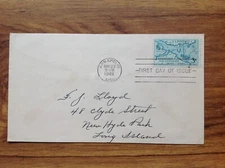 FIRST DAY OF ISSUE
F. J. Lloyd
48 Clyde Street
New Hyde Park
Long Island